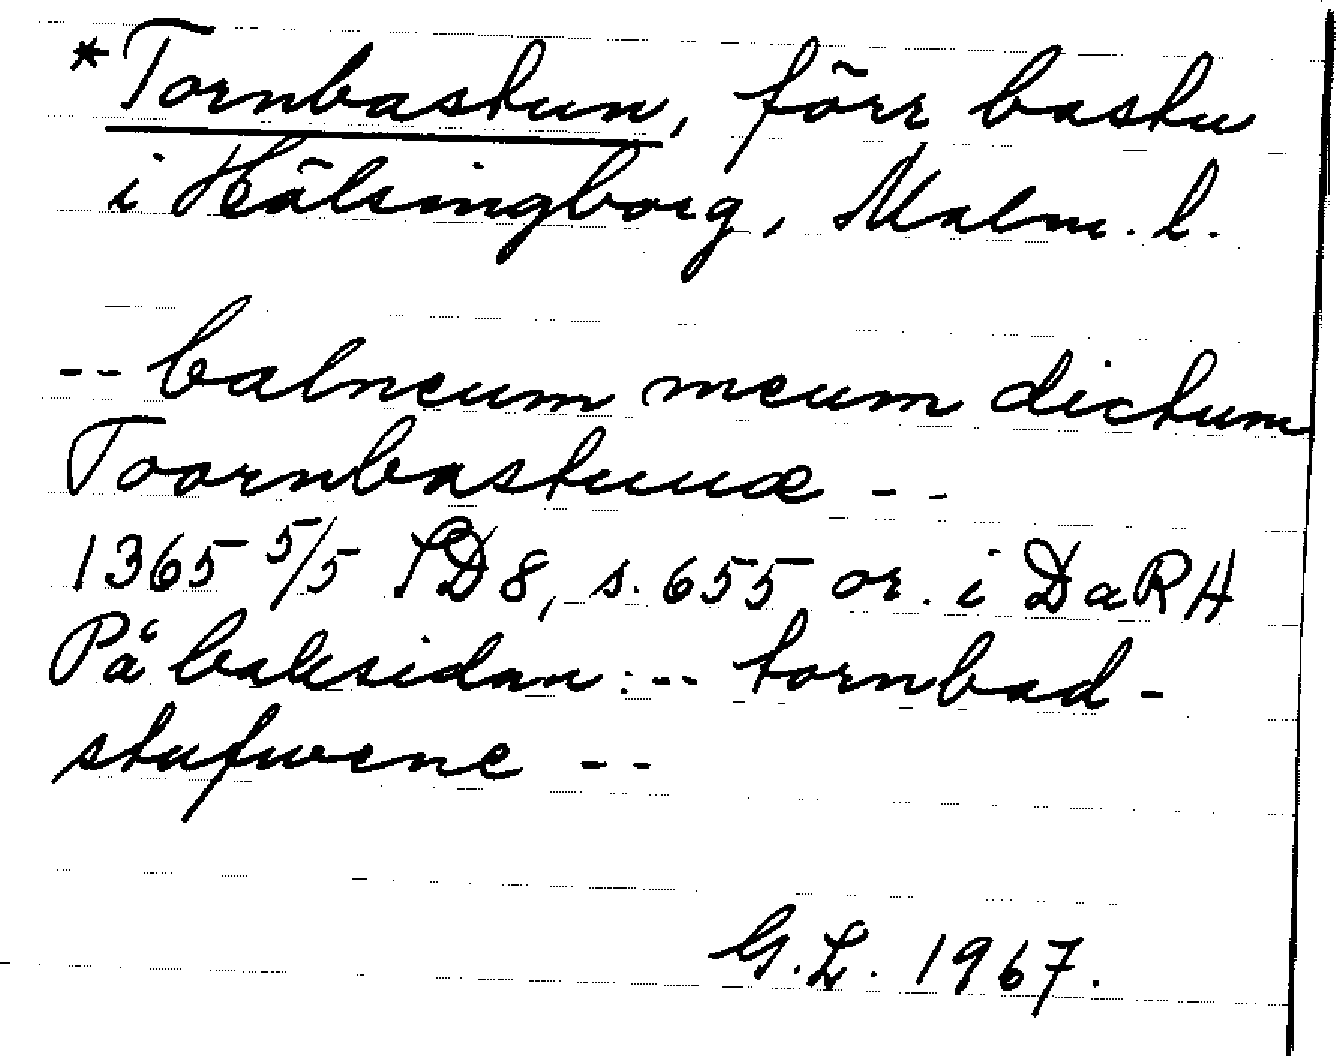 *Tornbastun, förr bastu
i Hälsingborg, Malm. l.
-- balneum meum dictum
Toornbastuuæ --
1365 5/5 SD 8, s. 655 or. i DaRH
På baksidan: -- tornbad-
stufwene --
G.L. 1967.